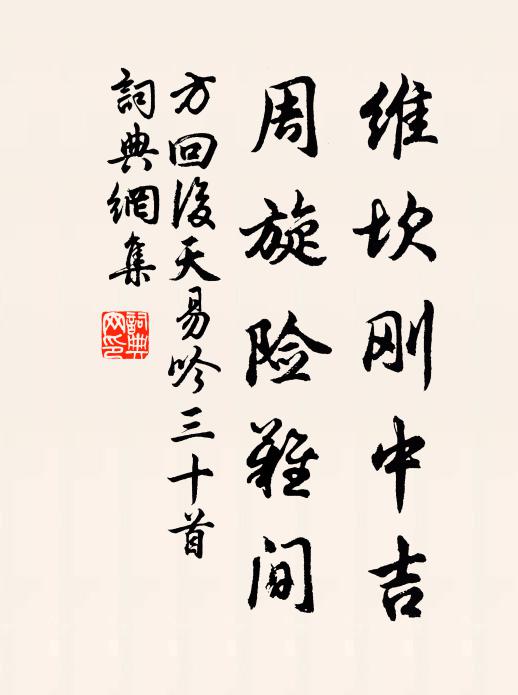 维坎刚中吉
周旋险难间
方回後天易吟三十首
詞典網集
詞典網印